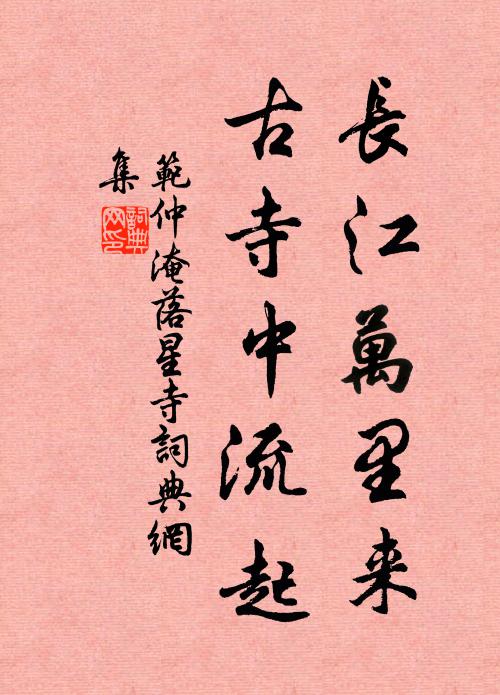 長江萬里来
古寺中流起
範仲淹落星寺詞典網
集
詞典
网印